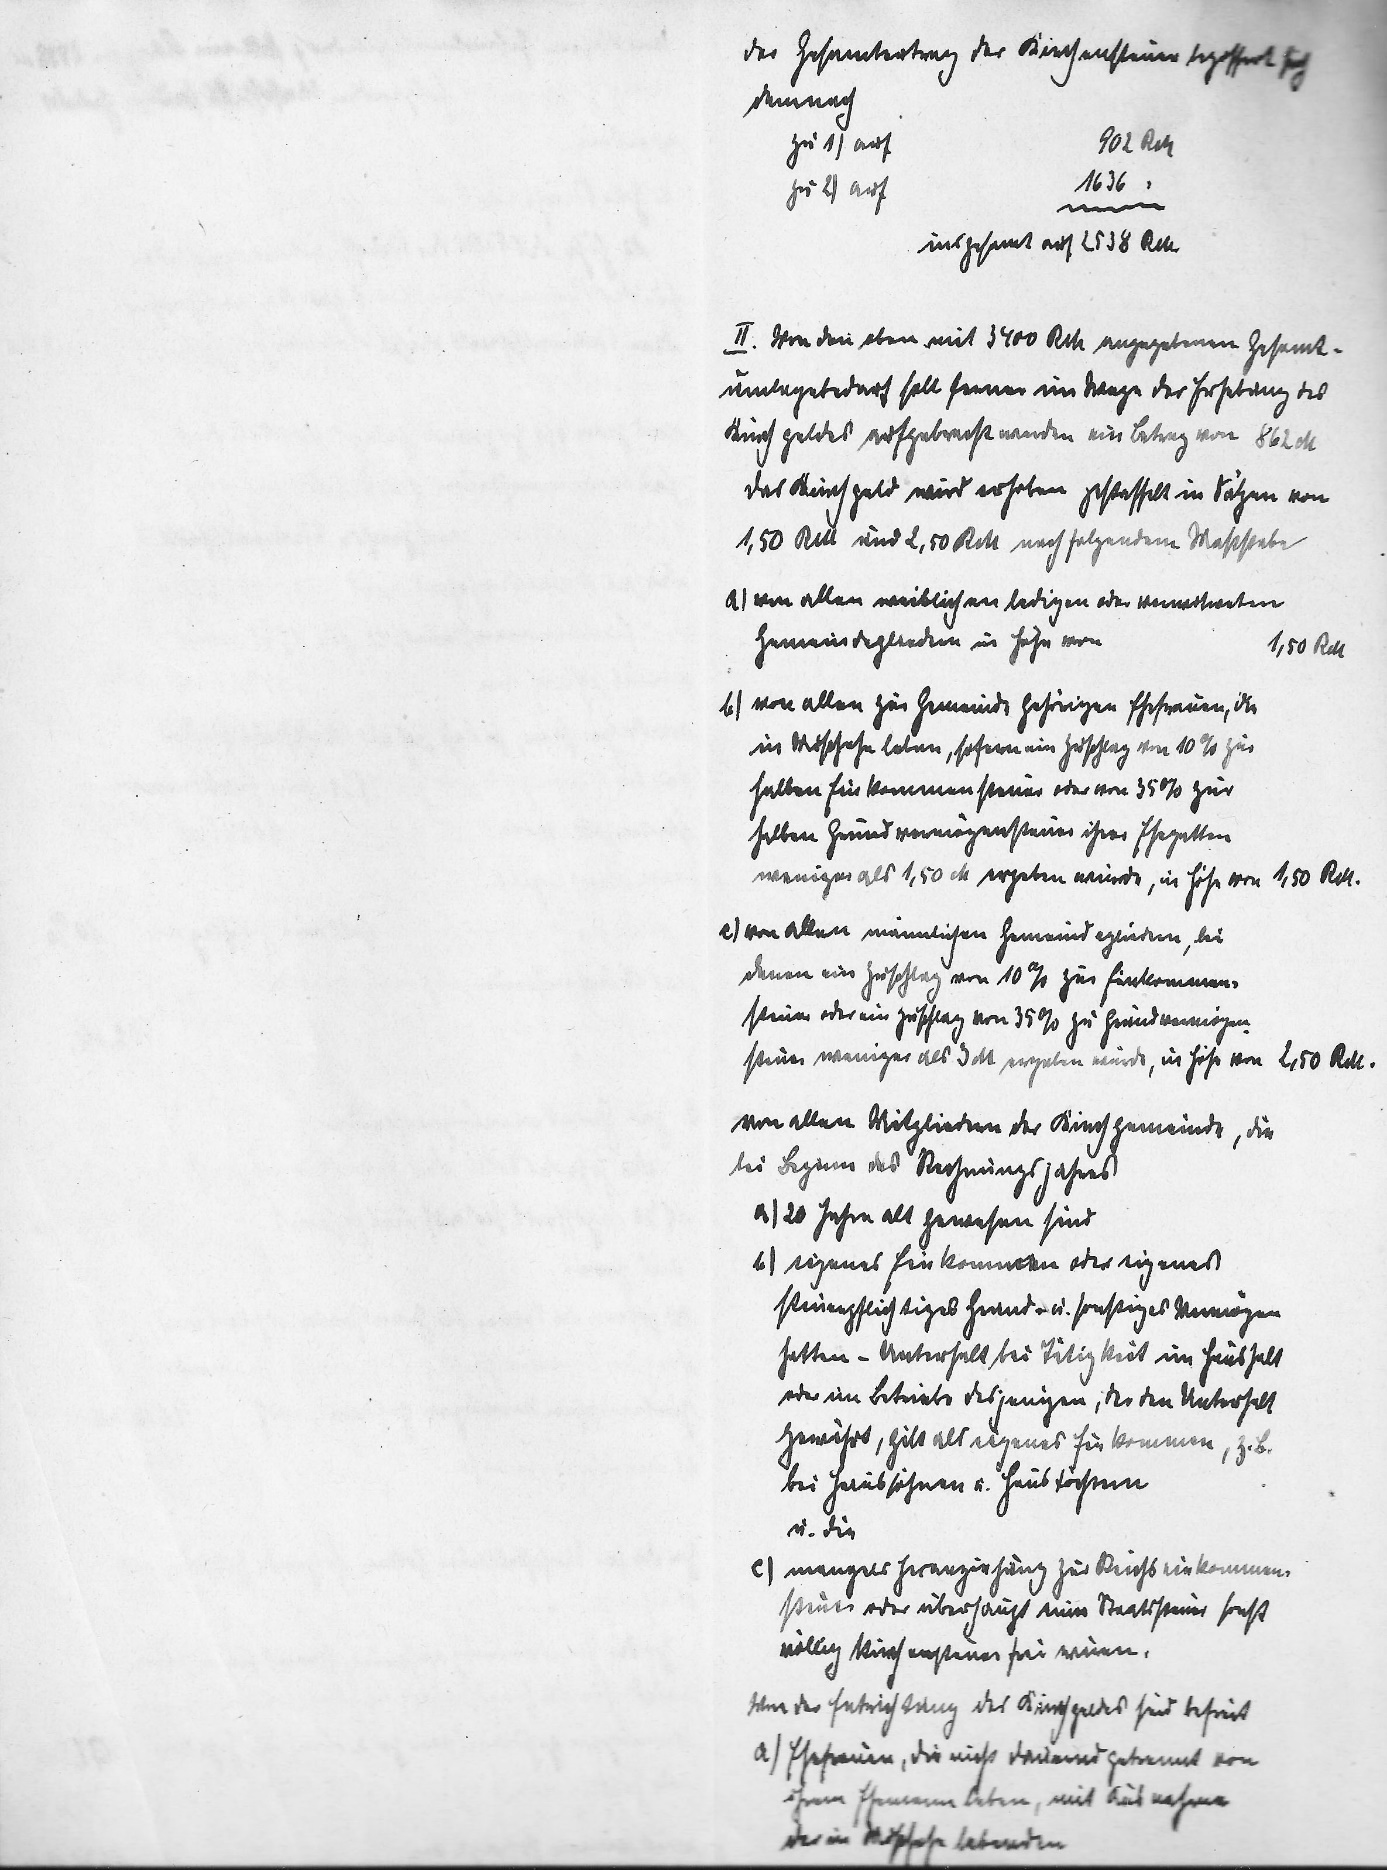 der Gesamtertrag der Kirchensteuer beziffert sich
demnach
zu 1) auf 902 RM
zu 2) auf 1636 "
insgesamt auf 2538 RM.
II. Von den oben mit 3400 RM angegebenen Gesamt-
umlagebedarf soll ferner im Wege der Erhebung des
Kirchgeldes aufgebracht werden ein Betrag von 862 M
Das Kirchgeld wird erhoben gestaffelt in Sätzen von
1,50 RM und 2,50 RM nach folgendem Maßstabe
a) von allen weiblichen ledigen oder verwitweten
Gemeindegliedern in Höhe von 1,50 RM
b) von allen zur Gemeinde gehörigen Ehefrauen, die
in Mischehe leben, sofern ein Zuschlag von 10% zur
halben Einkommensteuer oder von 35% zur
halben Grundvermögensteuer ihres Ehegatten
weniger als 1,50 M ergeben würde, in Höhe von 1,50 RM.
c) von allen männlichen Gemeindegliedern, bei
denen ein Zuschlag von 10% zur Einkommen-
steuer oder ein Zuschlag von 35% zu Grundvermögen-
steuer weniger als 3 M ergeben würde, in Höhe von 2,50 RM.
von allen Mitgliedern der Kirchgemeinde, die
bei Beginn des Rechnungsjahres
a) 20 Jahre alt gewesen sind
b) eigenes Einkommen oder eigenes
steuerpflichtiges Grund- u. sonstiges Vermögen
hatten - Unterhalt bei Tätigkeit im Haushalt
oder im Betriebe desjenigen, der den Unterhalt
gewährt, gilt als eigenes Einkommen, z.B.
bei Haussöhnen u. Haustöchtern
u. die
c) mangels Heranziehung zur Reichseinkommen-
steuer oder überhaupt einer Staatssteuer sonst
völlig kirchensteuerfrei wären.
Von der Entrichtung des Kirchgeldes sind befreit
a) Ehefrauen, die nicht dauernd getrennt von
ihrem Ehemann leben, mit Ausnahme
der in Mischehe lebenden